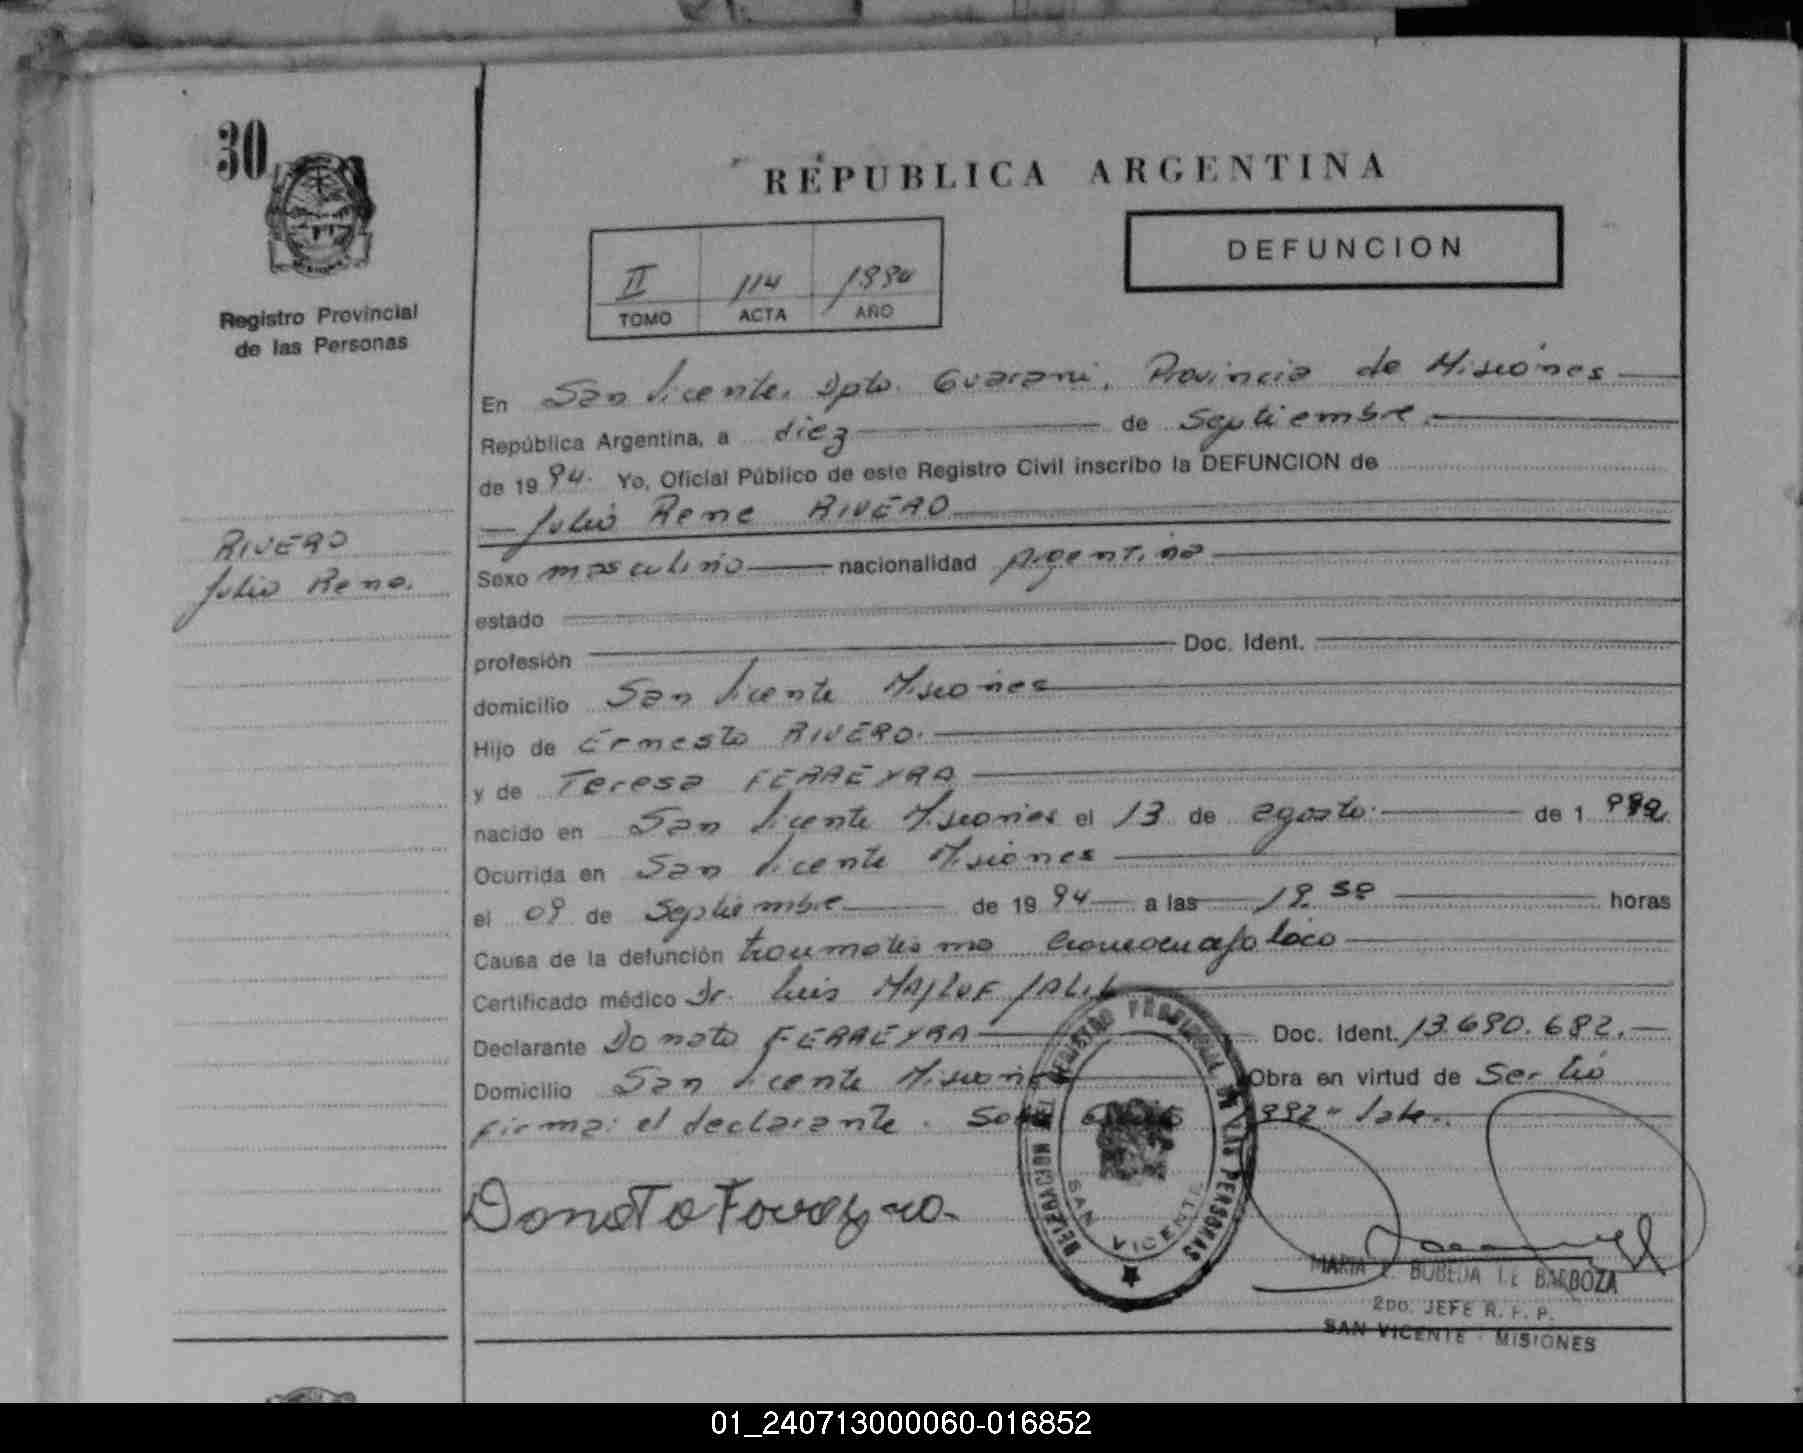 30
REPUBLICA ARGENTINA
DEFUNCION
II 114 1994
TOMO ACTA AÑO
Registro Provincial
de las Personas
RIVERO
Julio Rene.
En San Vicente, Dpto. Guarani, Provincia de Misiones
República Argentina, a diez de Septiembre.
de 1994. Yo, Oficial Público de este Registro Civil inscribo la DEFUNCION de
Julio Rene RIVERO
Sexo masculino nacionalidad Argentina
estado
profesión Doc. Ident.
domicilio San Vicente Misiones
Hijo de Ernesto RIVERO.
y de Teresa FERREYRA
nacido en San Vicente Misiones el 13 de agosto. de 1992.
Ocurrida en San Vicente Misiones
el 09 de Septiembre de 1994 a las horas
Causa de la defunción traumatismo craneoencefalico
Certificado médico Dr. Luis MAJLUF JALIL
Declarante Donato FERREYRA Doc. Ident. 13.690.682.
Domicilio San Vicente Misiones Obra en virtud de ser tio
firma: el declarante. 992" Vale.
Donato Ferreyra
DELEGACION DEL REGISTRO PROVINCIAL DE LAS PERSONAS
SAN VICENTE
MARIA BOBEDA DE BARBOZA
2DO. JEFE R. P. P.
SAN VICENTE - MISIONES
01_240713000060-016852